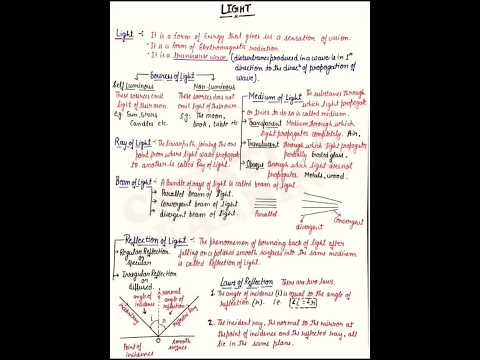 LIGHT
Light :- It is a form of Energy that gives us a sensation of vision.
• It is a form of Electromagnetic radiation
• It is a transverse wave (disturbances produced in a wave is in 1st
direction to the direcn of propagation of
wave).
Sources of Light
Self Luminous
These sources emit
light of their own.
e.g. Sun, stars
Candles etc
Non-Luminous
These sources does not
emit light of their own
e.g: The moon,
book, table etc
Medium of Light :- The substance through
which light propagate
or tries to do so is called medium.
Transparent Medium through which
light propagates completely. Air,
Translucent through which light propagates
partially
Opaque through which light does not
propagates Metals, wood.
Ray of Light :- The straight path joining the one
point from where light wave propagate
to another is called Ray of Light.
Beam of Light :- A bundle of rays of light is called beam of light.
Parallel beam of light.
Convergent beam of light
divergent beam of light.
Parallel
divergent
Convergent
Reflection of Light :- The phenomenon of bouncing back of light after
falling on polished smooth surface into the same medium
is called Reflection of Light.
Regular Reflection
or
Specular
Irregular Reflection
or
diffused.
Laws of Reflection There are two laws.
1. The angle of incidence (i) is equal to the angle of
reflection (r). i.e. ∠i = ∠r
2. The incident ray, the normal to the mirror at
the point of incidence and the reflected ray, all
lie in the same plane.
angle of
incidence
normal
angle of
reflection
incident ray
reflected ray
i
r
Point of
incidence
smooth
surface